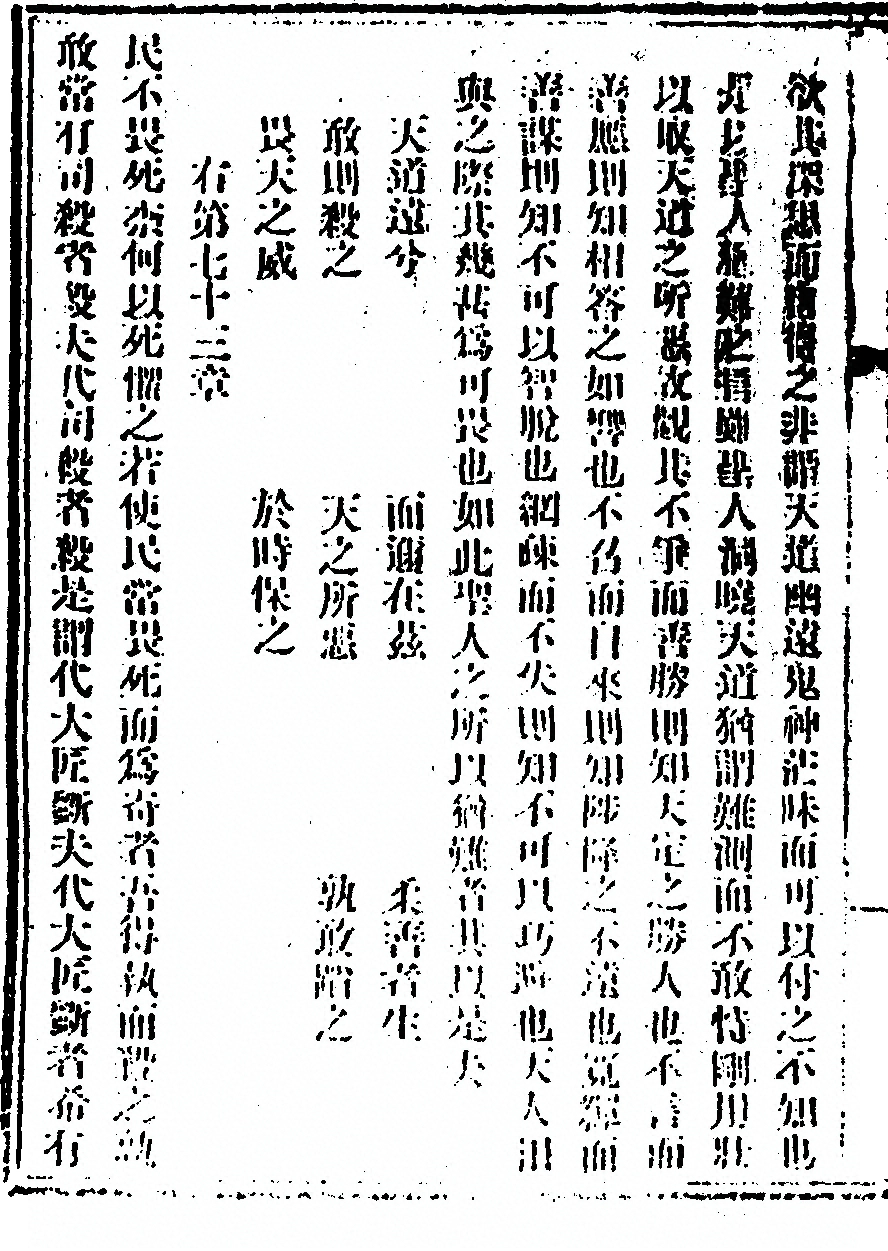 欲其深思而精得之非謂天道幽遠鬼神茫昧而可以付之不知也
是以聖人猶難之謂雖聖人洞曉天道猶謂難測而不敢恃剛用壯
以取天道之所惡汝觀其不爭而善勝則知天定之勝人也不言而
善應則知相答之如響也不召而自來則知陟降之不遠也寬繟而
善謀則知不可以智脫也網疎而不失則知不可以巧避也天人相
與之際其幾甚爲可畏也如此聖人之所以猶難者其以是夫
天道遠兮 而邇在茲 柔善者生
敢則殺之 天之所惡 孰敢蹈之
畏天之威 於時保之
右第七十三章
民不畏死柰何以死懼之若使民常畏死而爲奇者吾得執而殺之孰
敢常有司殺者殺夫代司殺者殺是謂代大匠斲夫代大匠斲者希有